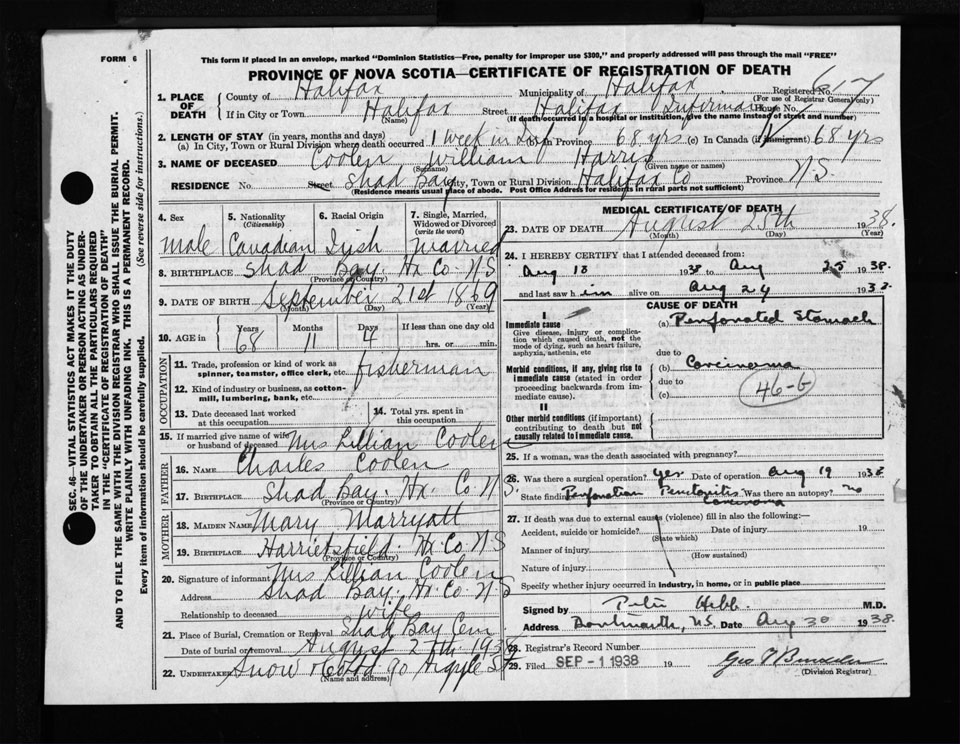 FORM 6
This form if placed in an envelope, marked "Dominion Statistics—Free, penalty for improper use $300," and properly addressed will pass through the mail "FREE"
PROVINCE OF NOVA SCOTIA—CERTIFICATE OF REGISTRATION OF DEATH
1. PLACE OF DEATH County of Halifax Municipality of Halifax Registered No. 617
(For use of Registrar General only)
If in City or Town Halifax Street Halifax Infirmary House No.
(Name) (If death occurred in a hospital or institution, give name instead of street and number)
2. LENGTH OF STAY (in years, months and days)
(a) In City, Town or Rural Division where death occurred 1 week in Inf (b) In Province 68 yrs (c) In Canada (if immigrant) 68 yrs
3. NAME OF DECEASED Coolen William Harris
(Surname) (Given name or names)
RESIDENCE No. Street Shad Bay City, Town or Rural Division Halifax Co Province N.S.
(Residence means usual place of abode. Post Office Address for residents in rural parts not sufficient)
SEC. 46—VITAL STATISTICS ACT MAKES IT THE DUTY
OF THE UNDERTAKER OR PERSON ACTING AS UNDER-
TAKER TO OBTAIN ALL THE PARTICULARS REQUIRED
IN THE "CERTIFICATE OF REGISTRATION OF DEATH"
AND TO FILE THE SAME WITH THE DIVISION REGISTRAR WHO SHALL ISSUE THE BURIAL PERMIT.
WRITE PLAINLY WITH UNFADING INK. THIS IS A PERMANENT RECORD.
Every item of information should be carefully supplied. (See reverse side for instructions.)
4. Sex 5. Nationality 6. Racial Origin 7. Single, Married,
(Citizenship) Widowed or Divorced
(write the word)
Male Canadian Irish Married
8. BIRTHPLACE Shad Bay. Hx Co. N.S
(Province or Country)
9. DATE OF BIRTH September 21st 1869
(Month) (Day) (Year)
10. AGE in Years Months Days If less than one day
68 11 4 hrs. or min.
OCCUPATION
11. Trade, profession or kind of work as
spinner, teamster, office clerk, etc. fisherman
12. Kind of industry or business, as cotton-
mill, lumbering, bank, etc.
13. Date deceased last worked
at this occupation
14. Total yrs. spent in
this occupation
15. If married give name of wife
or husband of deceased Mrs Lillian Coolen
FATHER
16. NAME Charles Coolen
17. BIRTHPLACE Shad Bay. Hx. Co. N.S.
(Province or Country)
MOTHER
18. MAIDEN NAME Mary Marryatt
19. BIRTHPLACE Harrietsfield. Hx. Co. N.S
(Province or Country)
20. Signature of informant Mrs Lillian Coolen
Address Shad Bay. Hx. Co. N.S
Relationship to deceased wife
21. Place of Burial, Cremation or Removal Shad Bay Cem
Date of burial or removal August 27th 1938
22. UNDERTAKER Snow & Co Ltd 90 Argyle St
(Name and address)
MEDICAL CERTIFICATE OF DEATH
23. DATE OF DEATH August 25th 1938.
(Month) (Day) (Year)
24. I HEREBY CERTIFY that I attended deceased from:
Aug 18 1938 to Aug 25 1938.
and last saw h im alive on Aug 24 1938.
CAUSE OF DEATH
I
Immediate cause (a) Perforated Stomach
Give disease, injury or complica-
tion which caused death, not the
mode of dying, such as heart failure,
asphyxia, asthenia, etc
due to
Morbid conditions, if any, giving rise to (b) Carcinoma
immediate cause (stated in order
proceeding backwards from im-
mediate cause).
due to
(c) 46-G
II
Other morbid conditions (if important)
contributing to death but not
causally related to immediate cause.
25. If a woman, was the death associated with pregnancy?
26. Was there a surgical operation? yes Date of operation Aug 19 1938
State findings Perforation Peritonitis Carcinoma Was there an autopsy? no
27. If death was due to external causes (violence) fill in also the following:—
Accident, suicide or homicide? Date of injury 19
(State which)
Manner of injury
(How sustained)
Nature of injury
Specify whether injury occurred in industry, in home, or in public place
Signed by Peter Hebb M.D.
Address Dartmouth, N.S. Date Aug 30 1938.
28. Registrar's Record Number
29. Filed SEP -1 1938 19
(Division Registrar)